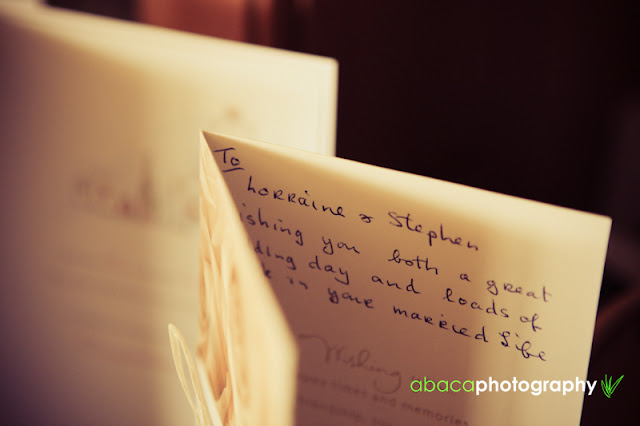 To
Lorraine & Stephen
ishing you both a great
ding day and loads of
in your married life
Wishing
times and memories
abacaphotography